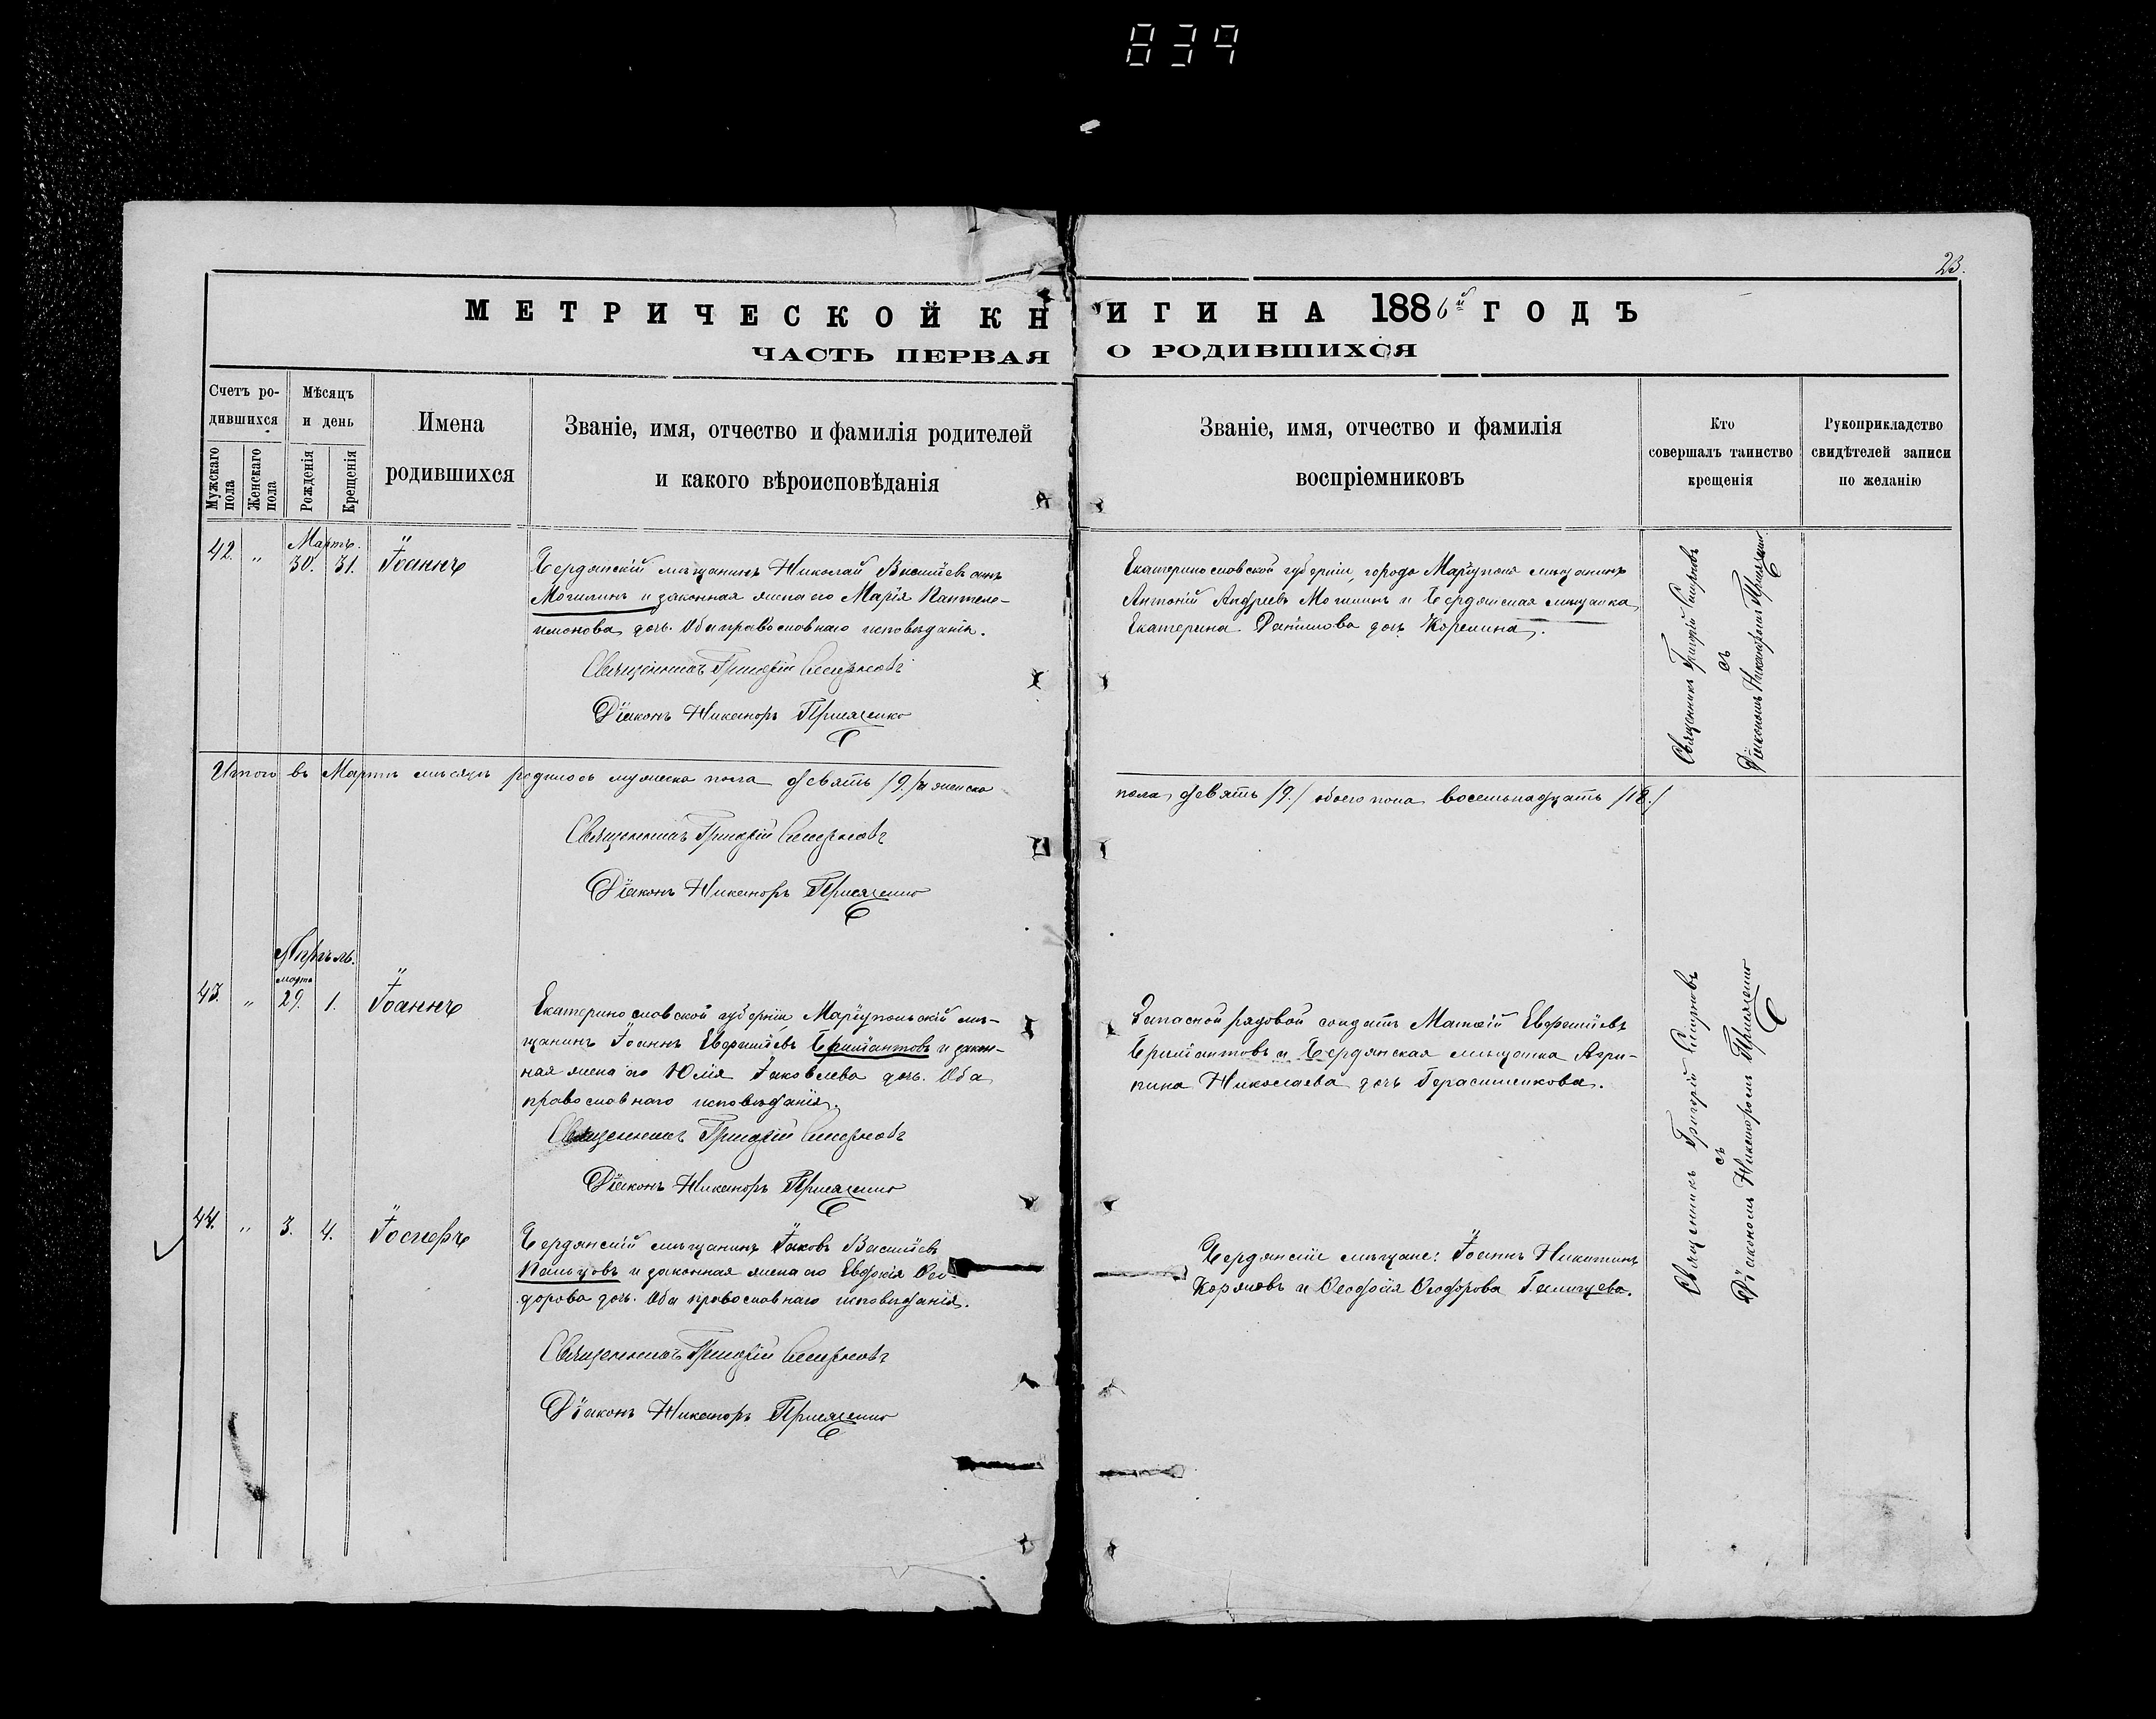 839
23.
МЕТРИЧЕСКОЙ КНИГИ НА 1886й ГОДЪ
ЧАСТЬ ПЕРВАЯ О РОДИВШИХСЯ
Счетъ ро-
дившихся
Мужскаго пола
Женскаго пола
Мѣсяцъ
и день
Рожденія
Крещенія
Имена
родившихся
Званіе, имя, отчество и фамилія родителей
и какого вѣроисповѣданія
Званіе, имя, отчество и фамилія
воспріемниковъ
Кто
совершалъ таинство
крещенія
Рукоприкладство
свидѣтелей записи
по желанію
Мартъ.
42. " 30. 31. Іоаннъ
Бердянскій мѣщанинъ Николай Василіевъ
Могилинъ и законная жена его Марія Пантеле-
имонова дочь. Оба православнаго исповѣданія.
Священникъ Григорій Смирновъ
Діаконъ Никаноръ
Екатеринославской губерніи, города Маріуполя мѣщанинъ
Антоній Андреевъ Могилинъ и Бердянская мѣщанка
Екатерина Даніилова дочь Корелина.
Священникъ Григорій Смирновъ
съ
Діакономъ Никаноромъ
Итого въ Мартѣ мѣсяцѣ родилось мужеска пола девять /9./ и женска
пола девять /9./ обоего пола восемьнадцать /18./
Священникъ Григорій Смирновъ
Діаконъ Никаноръ
Апрѣль.
марта
43. " 29. 1. Іоаннъ
Екатеринославской губерніи Маріупольскій мѣ-
щанинъ Іоаннъ Евфиміевъ Бриліантовъ и закон-
ная жена его Юлія Іаковлева дочь. Оба
православнаго исповѣданія.
Священникъ Григорій Смирновъ
Діаконъ Никаноръ
Запасной рядовой солдатъ Матѳій Евфиміевъ
Бриліантовъ и Бердянская мѣщанка Агри-
пина Николаева дочь Герасименкова.
44. " 3. 4. Іосифъ
Бердянскій мѣщанинъ Іаковъ Василіевъ
Пальцовъ и законная жена его Евдокія Ѳео-
дорова дочь. Оба православнаго исповѣданія.
Священникъ Григорій Смирновъ
Діаконъ Никаноръ
Бердянскіе мѣщане: Іоаннъ Никитинъ
и Ѳеодорова
Священникъ Григорій Смирновъ
съ
Діакономъ Никаноромъ